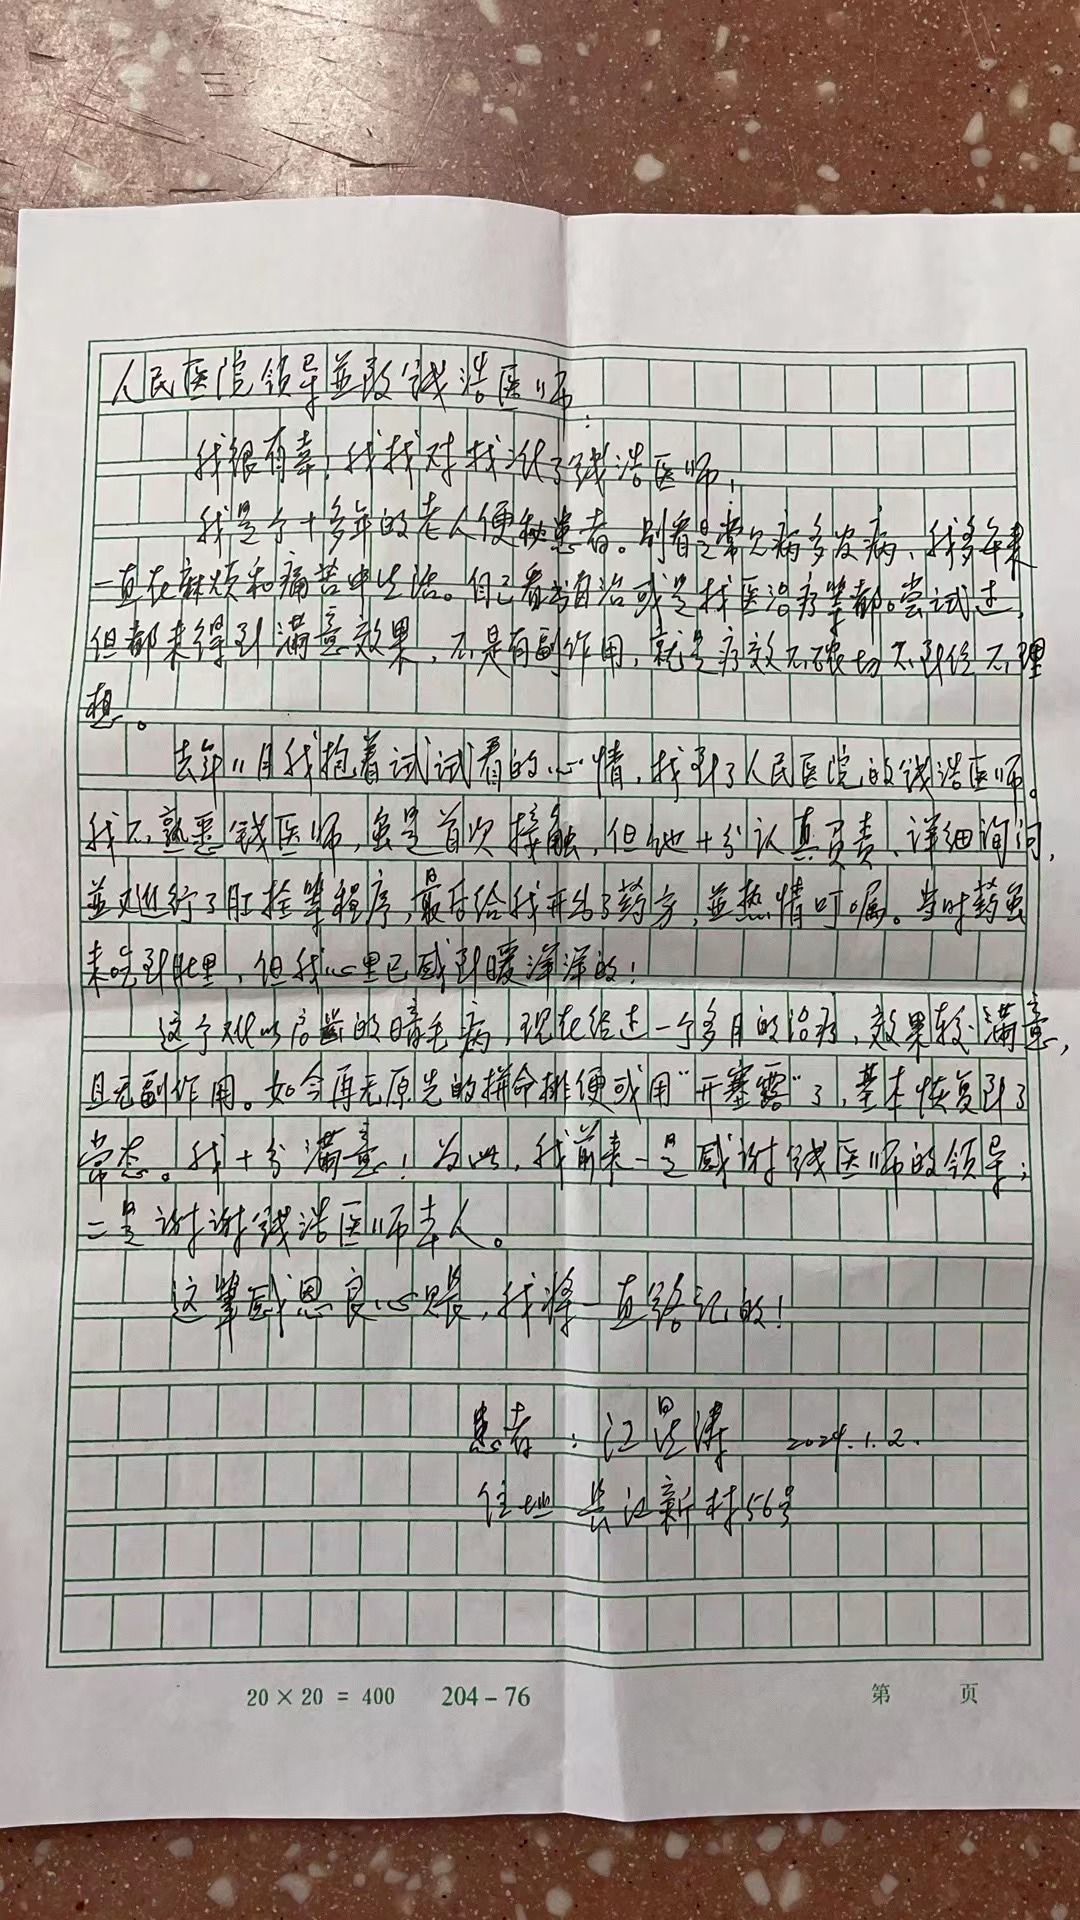 人民医院领导並致钱浩医师:
我很有幸,我找对找准了钱浩医师!
我是个十多年的老人便秘患者。别看是常见病多发病、我多年来
一直在麻烦和痛苦中生活。自己看书自治或是找医治疗等都尝试过,
但都未得到满意效果,不是有副作用,就是疗效不确切不到位不理
想。
去年11月我抱着试试看的心情,找到了人民医院的钱浩医师。
我不熟悉钱医师,虽是首次接触,但他十分认真负责、详细询问,
並又进行了肛检等程序,最后给我开出了药方,並热情叮嘱。当时药虽
未吃到肚里,但我心里已感到暖洋洋的!
这个难以启齿的暗毛病,现在经过一个多月的治疗,效果较满意,
且无副作用。如今再无原先的拼命排便或用"开塞露"了,基本恢复到了
常态。我十分满意!为此,我前来一是感谢钱医师的领导;
二是谢谢钱浩医师本人。
这笔感恩良心账,我将一直铭记的!
患者:江 涛 2024.1.2.
住址 长江新村56号
20×20=400 204-76 第 页